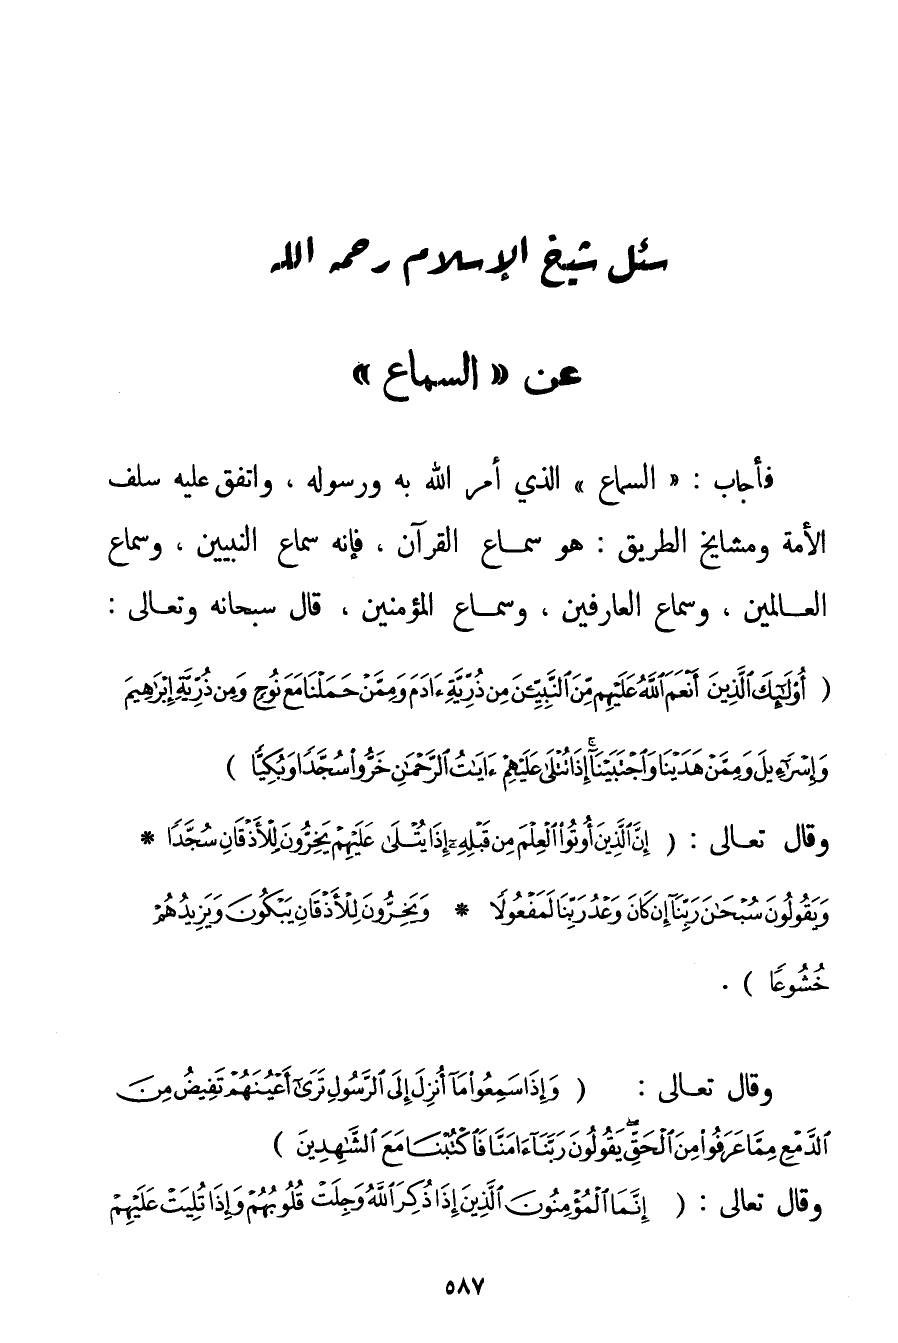 سئل شيخ الإسلام رحمه الله
عن « السماع »
فأجاب : « السماع » الذي أمر الله به ورسوله ، واتفق عليه سلف
الأمة ومشايخ الطريق : هو سماع القرآن ، فإنه سماع النبيين ، وسماع
العالمين ، وسماع العارفين ، وسماع المؤمنين ، قال سبحانه وتعالى :
( أُوْلَٰٓئِكَ ٱلَّذِينَ أَنْعَمَ ٱللَّهُ عَلَيْهِم مِّنَ ٱلنَّبِيِّـۧنَ مِن ذُرِّيَّةِ ءَادَمَ وَمِمَّنْ حَمَلْنَا مَعَ نُوحٍ وَمِن ذُرِّيَّةِ إِبْرَٰهِيمَ
وَإِسْرَٰٓءِيلَ وَمِمَّنْ هَدَيْنَا وَٱجْتَبَيْنَآ ۚ إِذَا تُتْلَىٰ عَلَيْهِمْ ءَايَٰتُ ٱلرَّحْمَٰنِ خَرُّوا۟ سُجَّدًا وَبُكِيًّا )
وقال تعالى : ( إِنَّ ٱلَّذِينَ أُوتُوا۟ ٱلْعِلْمَ مِن قَبْلِهِۦٓ إِذَا يُتْلَىٰ عَلَيْهِمْ يَخِرُّونَ لِلْأَذْقَانِ سُجَّدًا *
وَيَقُولُونَ سُبْحَٰنَ رَبِّنَآ إِن كَانَ وَعْدُ رَبِّنَا لَمَفْعُولًا * وَيَخِرُّونَ لِلْأَذْقَانِ يَبْكُونَ وَيَزِيدُهُمْ
خُشُوعًا ) .
وقال تعالى : ( وَإِذَا سَمِعُوا۟ مَآ أُنزِلَ إِلَى ٱلرَّسُولِ تَرَىٰٓ أَعْيُنَهُمْ تَفِيضُ مِنَ
ٱلدَّمْعِ مِمَّا عَرَفُوا۟ مِنَ ٱلْحَقِّ ۖ يَقُولُونَ رَبَّنَآ ءَامَنَّا فَٱكْتُبْنَا مَعَ ٱلشَّٰهِدِينَ )
وقال تعالى : ( إِنَّمَا ٱلْمُؤْمِنُونَ ٱلَّذِينَ إِذَا ذُكِرَ ٱللَّهُ وَجِلَتْ قُلُوبُهُمْ وَإِذَا تُلِيَتْ عَلَيْهِمْ
٥٨٧